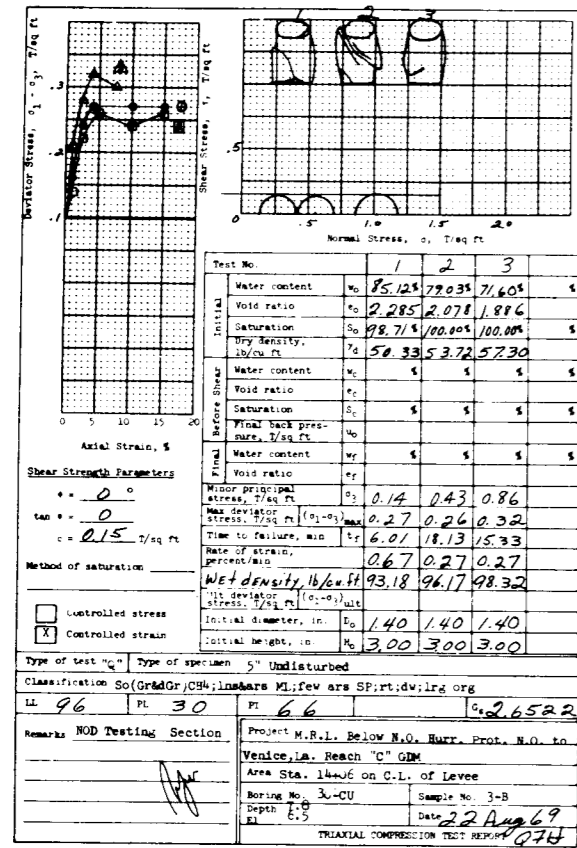 Deviator Stress, σ1 - σ3, T/sq ft
.3
.2
.1
0 5 10 15 20
Axial Strain, %
Shear Stress, τ, T/sq ft
.5
1 2 3
0 .5 1.0 1.5 20
Normal Stress, σ, T/sq ft
Shear Strength Parameters
φ = 0 °
tan φ = 0
c = 0.15 T/sq ft
Method of saturation
Controlled stress
X Controlled strain
Test No. 1 2 3
Initial
Water content wo 85.12% 79.03% 71.60% %
Void ratio eo 2.285 2.078 1.886
Saturation So 98.71% 100.00% 100.00% %
Dry density, lb/cu ft γd 50.33 53.72 57.30
Before Shear
Water content wc % % % %
Void ratio ec
Saturation Sc % % % %
Final back pressure, T/sq ft uo
Final
Water content wf % % % %
Void ratio ef
Minor principal stress, T/sq ft σ3 0.14 0.43 0.86
Max deviator stress, T/sq ft (σ1-σ3)max 0.27 0.26 0.32
Time to failure, min tf 6.01 18.13 15.33
Rate of strain, percent/min 0.67 0.27 0.27
WEt dENSity, lb/cu.ft 93.18 96.17 98.32
Ult deviator stress, T/sq ft (σ1-σ3)ult
Initial diameter, in. Do 1.40 1.40 1.40
Initial height, in. Ho 3.00 3.00 3.00
Type of test "Q" Type of specimen 5" Undisturbed
Classification So(Gr&dGr)CH4;lns&ars ML;few ars SP;rt;dw;lrg org
LL 96 PL 30 PI 66 Gs 2.6522
Remarks NOD Testing Section
Project M.R.L. Below N.O. Hurr. Prot. N.O. to
Venice,La. Reach "C" GDM
Area Sta. 14+06 on C.L. of Levee
Boring No. Sample No. 3-B
Depth 7.8
El 6.5 Date 22 Aug 69
TRIAXIAL COMPRESSION TEST REPORT